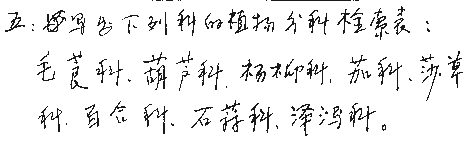 五：写出下列科的植物分科检索表：
毛茛科、葫芦科、杨柳科、茄科、莎草
科、百合科、石蒜科、泽泻科。